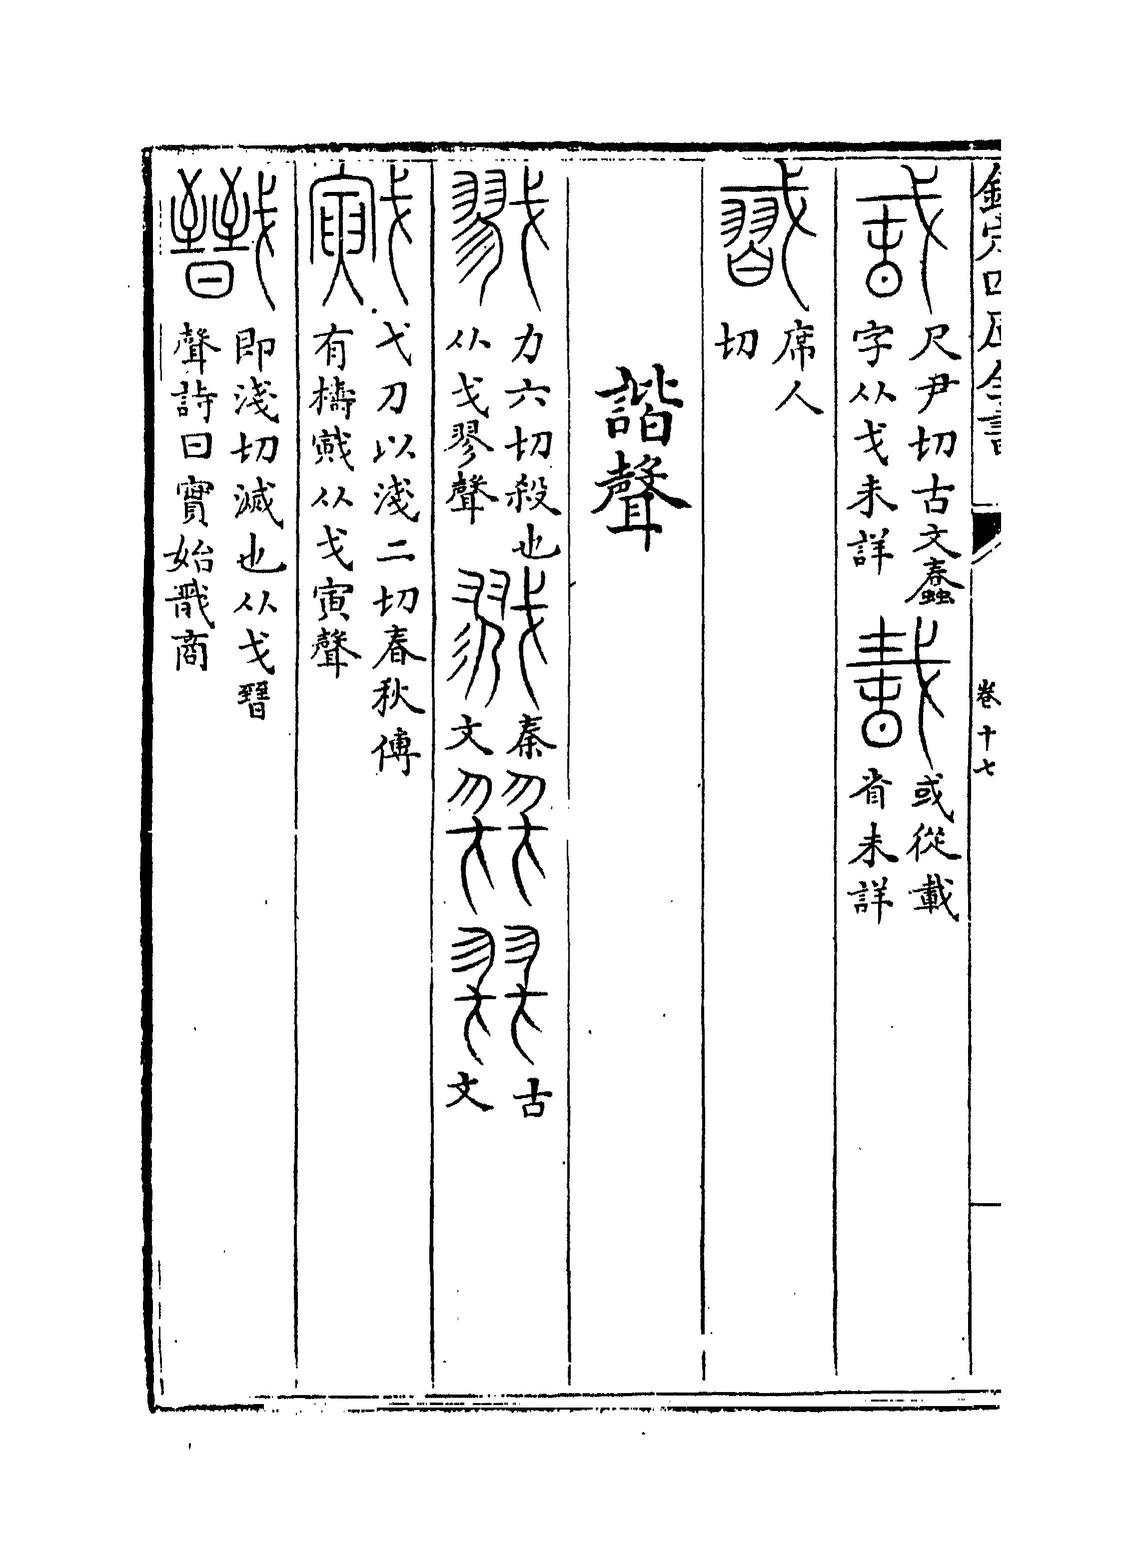 欽定四庫全書
卷十七
尺尹切古文蠢
字从戈未詳
或從載
省未詳
席人
切
諧聲
力六切殺也
从戈翏聲
秦
文
古
文
弋刀以淺二切春秋傳
有檮戭从戈寅聲
即淺切滅也从戈晉
聲詩曰實始戩商